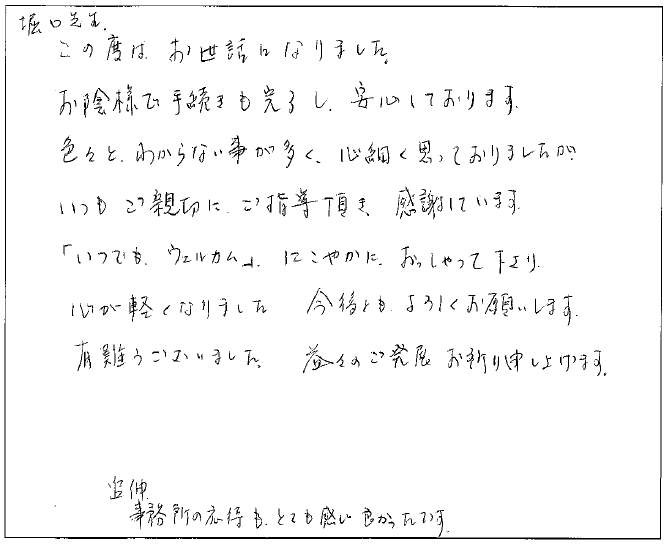 堀口先生
この度は、お世話になりました。
お陰様で手続きも完了し、安心しております。
色々と、わからない事が多く、心細く思っておりましたが
いつも ご親切に、ご指導頂き、感謝しています。
「いつでも、ウェルカム」、にこやかに、おっしゃって下さり、
心が軽くなりました 今後とも、よろしくお願いします。
有難うございました。 益々のご発展 お祈り申し上げます。
追伸
事務所の応待も、とても感じ良かったです。